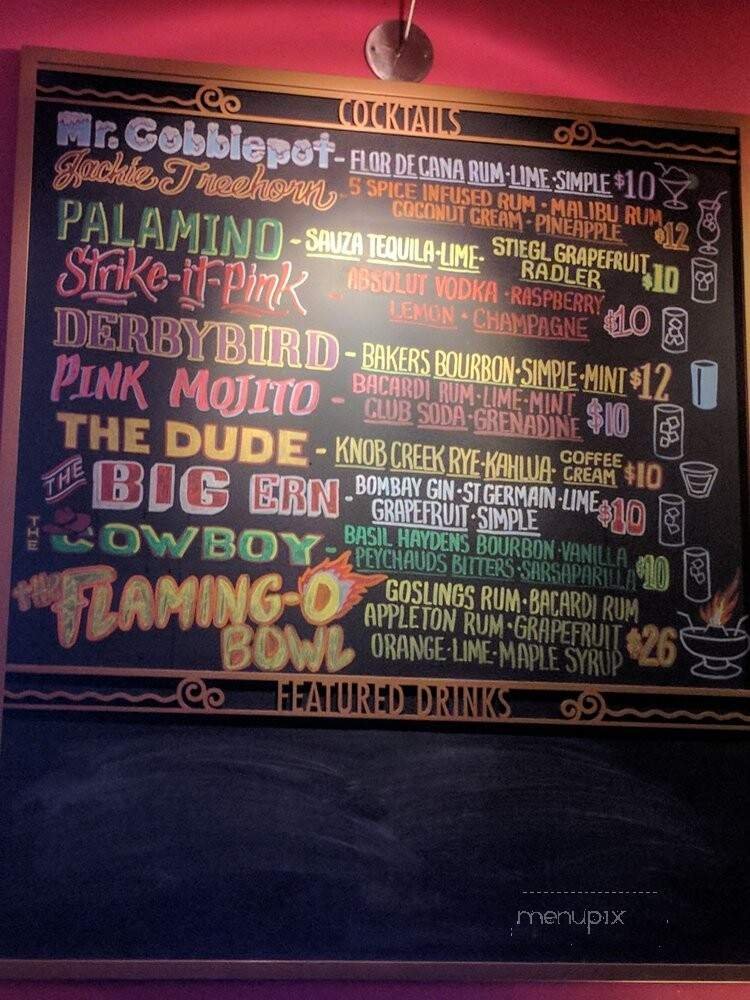 COCKTAILS
Mr. Cobblepot - FLOR DE CANA RUM · LIME · SIMPLE $10
Jackie Treehorn - 5 SPICE INFUSED RUM · MALIBU RUM
COCONUT CREAM · PINEAPPLE $12
PALAMINO - SAUZA TEQUILA · LIME · STIEGL GRAPEFRUIT
RADLER $10
Strike-it-Pink - ABSOLUT VODKA · RASPBERRY
LEMON · CHAMPAGNE $10
DERBYBIRD - BAKERS BOURBON · SIMPLE · MINT $12
PINK MOJITO - BACARDI RUM · LIME · MINT
CLUB SODA · GRENADINE $10
THE DUDE - KNOB CREEK RYE · KAHLUA · COFFEE
CREAM $10
THE BIG ERN - BOMBAY GIN · ST. GERMAIN · LIME
GRAPEFRUIT · SIMPLE $10
THE COWBOY - BASIL HAYDENS BOURBON · VANILLA
PEYCHAUDS BITTERS · SARSAPARILLA $10
THE FLAMING-O BOWL GOSLINGS RUM · BACARDI RUM
APPLETON RUM · GRAPEFRUIT
ORANGE · LIME · MAPLE SYRUP $26
FEATURED DRINKS
menupix